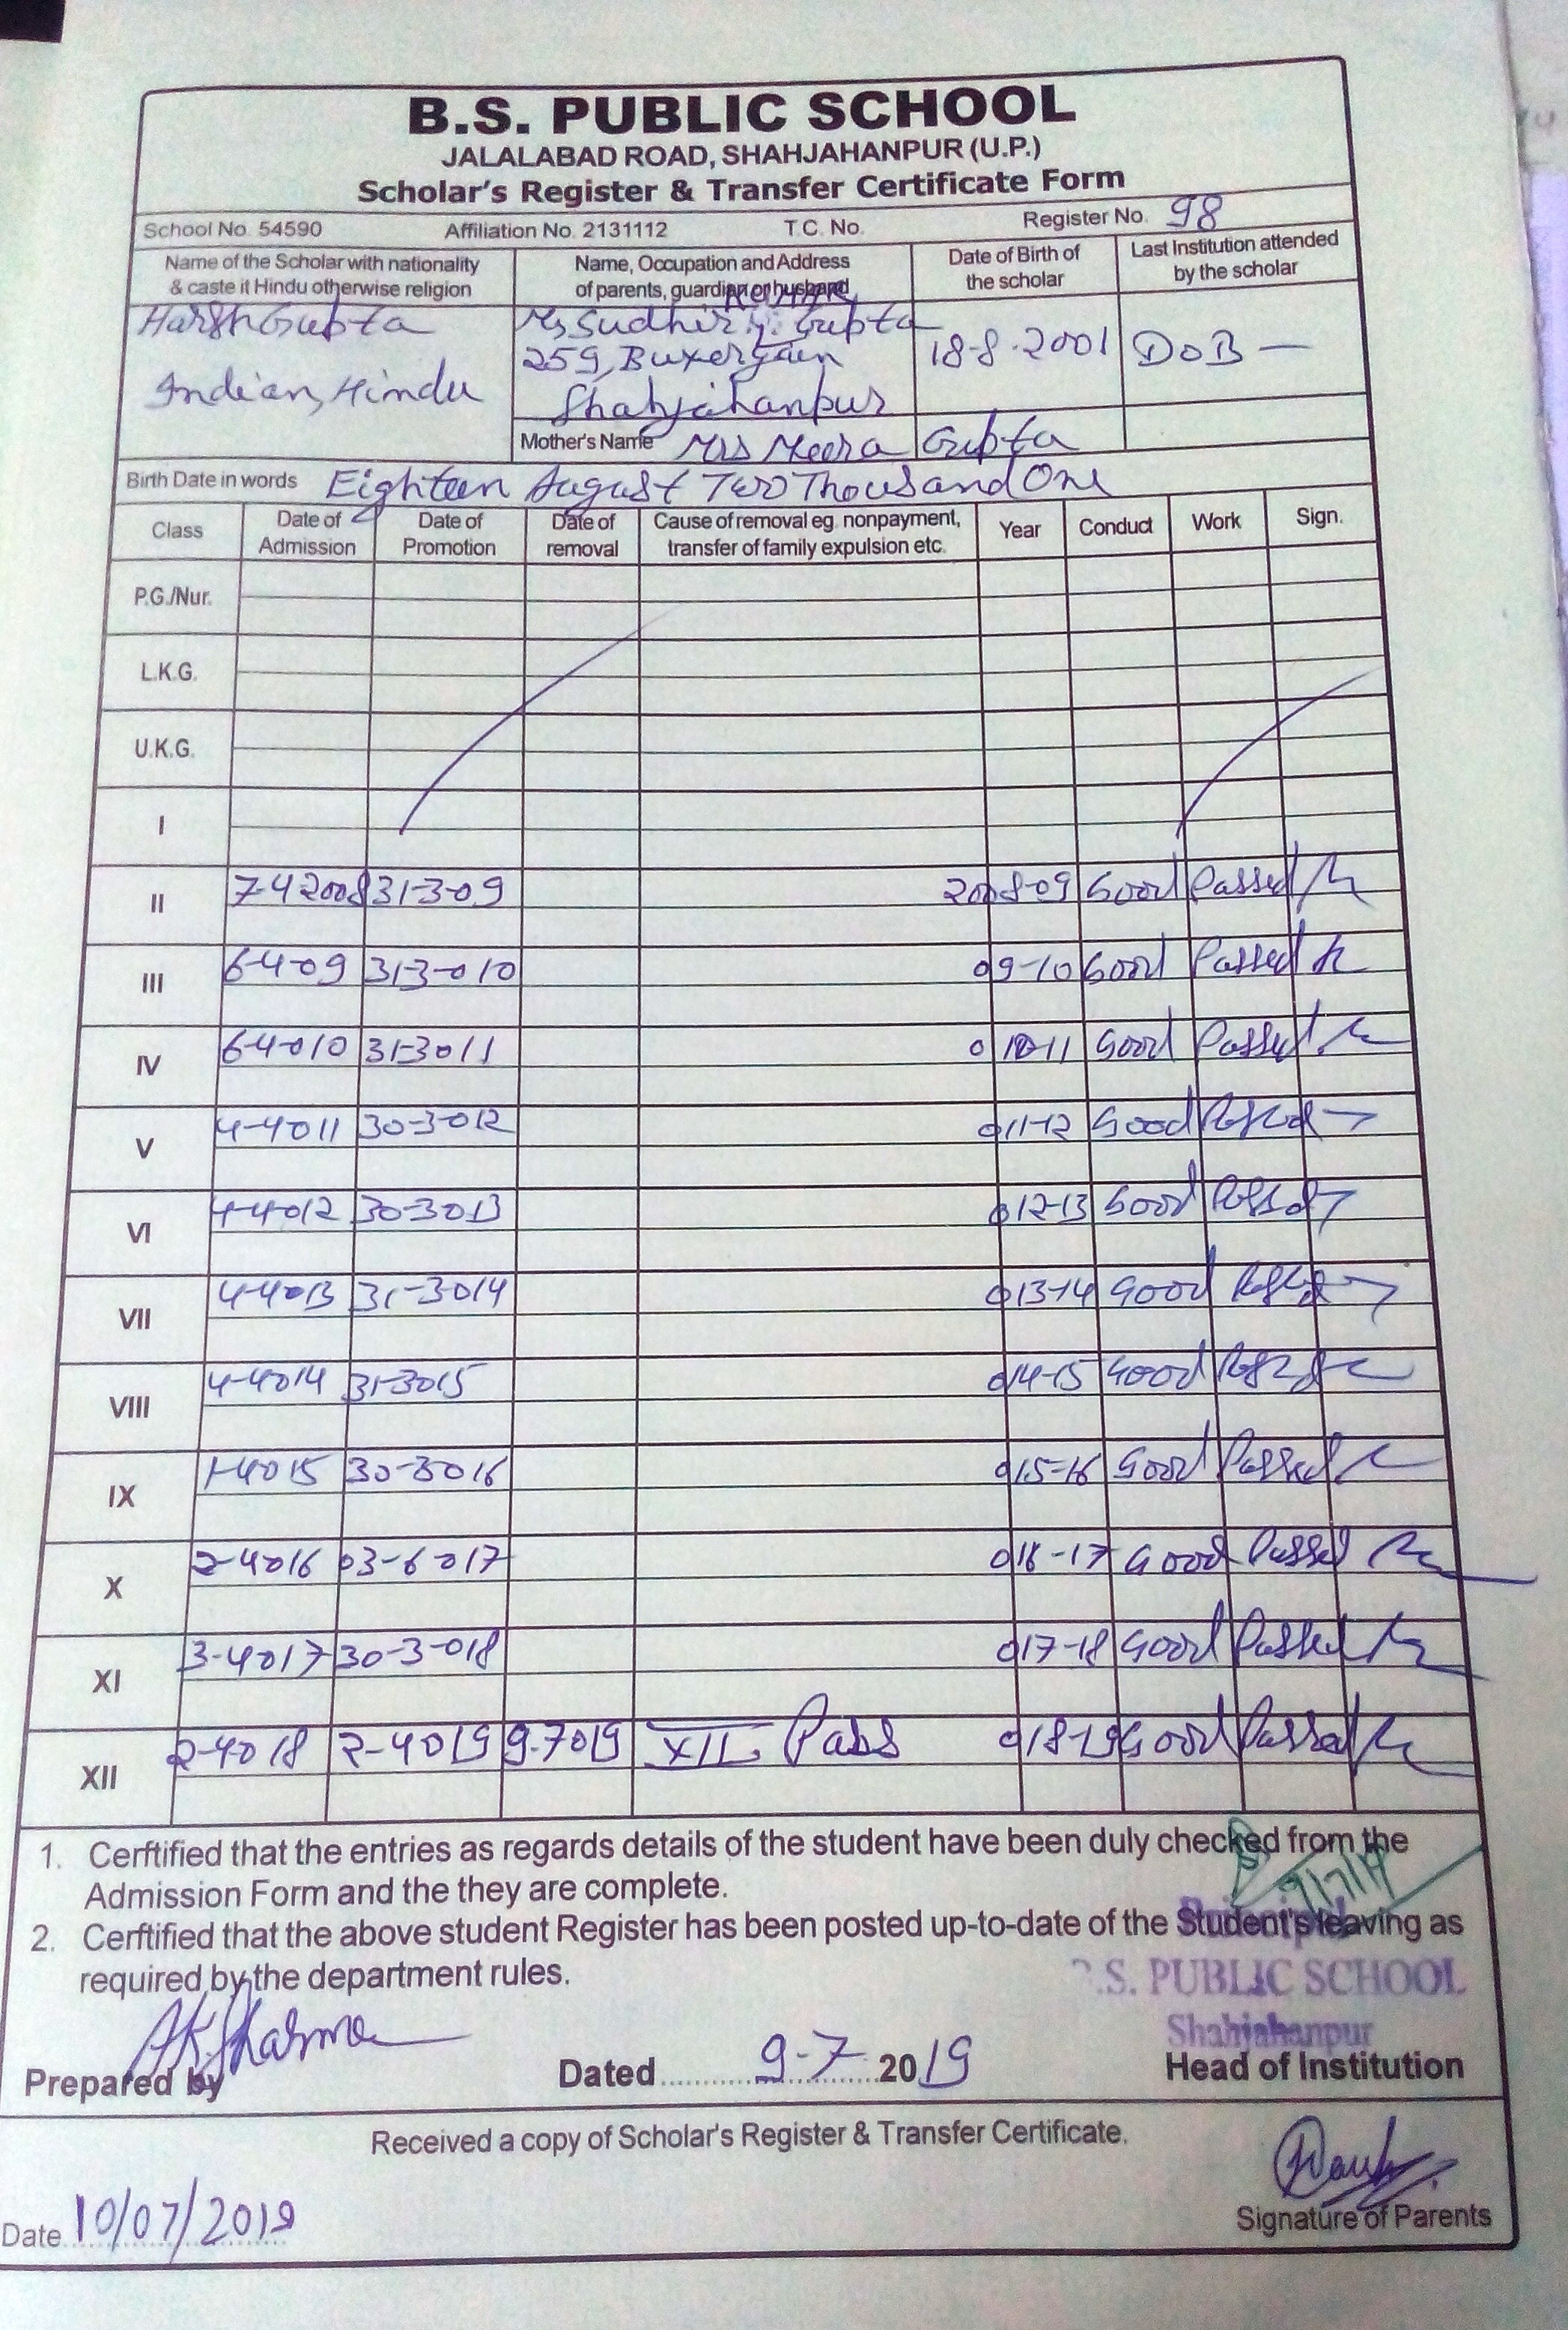 B.S. PUBLIC SCHOOL
JALALABAD ROAD, SHAHJAHANPUR (U.P.)
Scholar's Register & Transfer Certificate Form
School No. 54590 Affiliation No. 2131112 T.C. No. Register No. 98
Name of the Scholar with nationality & caste it Hindu otherwise religion
Name, Occupation and Address of parents, guardian or husband
Date of Birth of the scholar
Last Institution attended by the scholar
Harsh Gupta
Indian, Hindu
Kumar
Mr Sudhir Gupta
259, Buxeryan
Shahjahanpur
18-8-2001
DOB —
Mother's Name Mrs Meera Gupta
Birth Date in words Eighteen August Two Thousand One
Class Date of Admission Date of Promotion Date of removal Cause of removal eg. nonpayment, transfer of family expulsion etc. Year Conduct Work Sign.
P.G./Nur.
L.K.G.
U.K.G.
I
II 7-4-2008 31-3-09 2008-09 Good Passed
III 6-4-09 31-3-010 09-10 Good Passed
IV 6-4-010 31-3-011 010-11 Good Passed
V 4-4-011 30-3-012 011-12 Good Passed
VI 4-4-012 30-3-013 012-13 Good Passed
VII 4-4-013 31-3-014 013-14 Good Passed
VIII 4-4-014 31-3-015 014-15 Good Passed
IX 1-4-015 30-3-016 015-16 Good Passed
X 2-4-016 03-6-017 016-17 Good Passed
XI 3-4-017 30-3-018 017-18 Good Passed
XII 2-4-018 2-4-019 9-7-019 XII Pass 018-19 Good Passed
1. Cerftified that the entries as regards details of the student have been duly checked from the
Admission Form and the they are complete.
9/7/19
2. Cerftified that the above student Register has been posted up-to-date of the Student's leaving as
Principal
required by the department rules.
.S. PUBLIC SCHOOL
Shahjahanpur
A.K. Sharma
Prepared by Dated 9-7-2019 Head of Institution
Received a copy of Scholar's Register & Transfer Certificate.
Date 10/07/2019 Signature of Parents